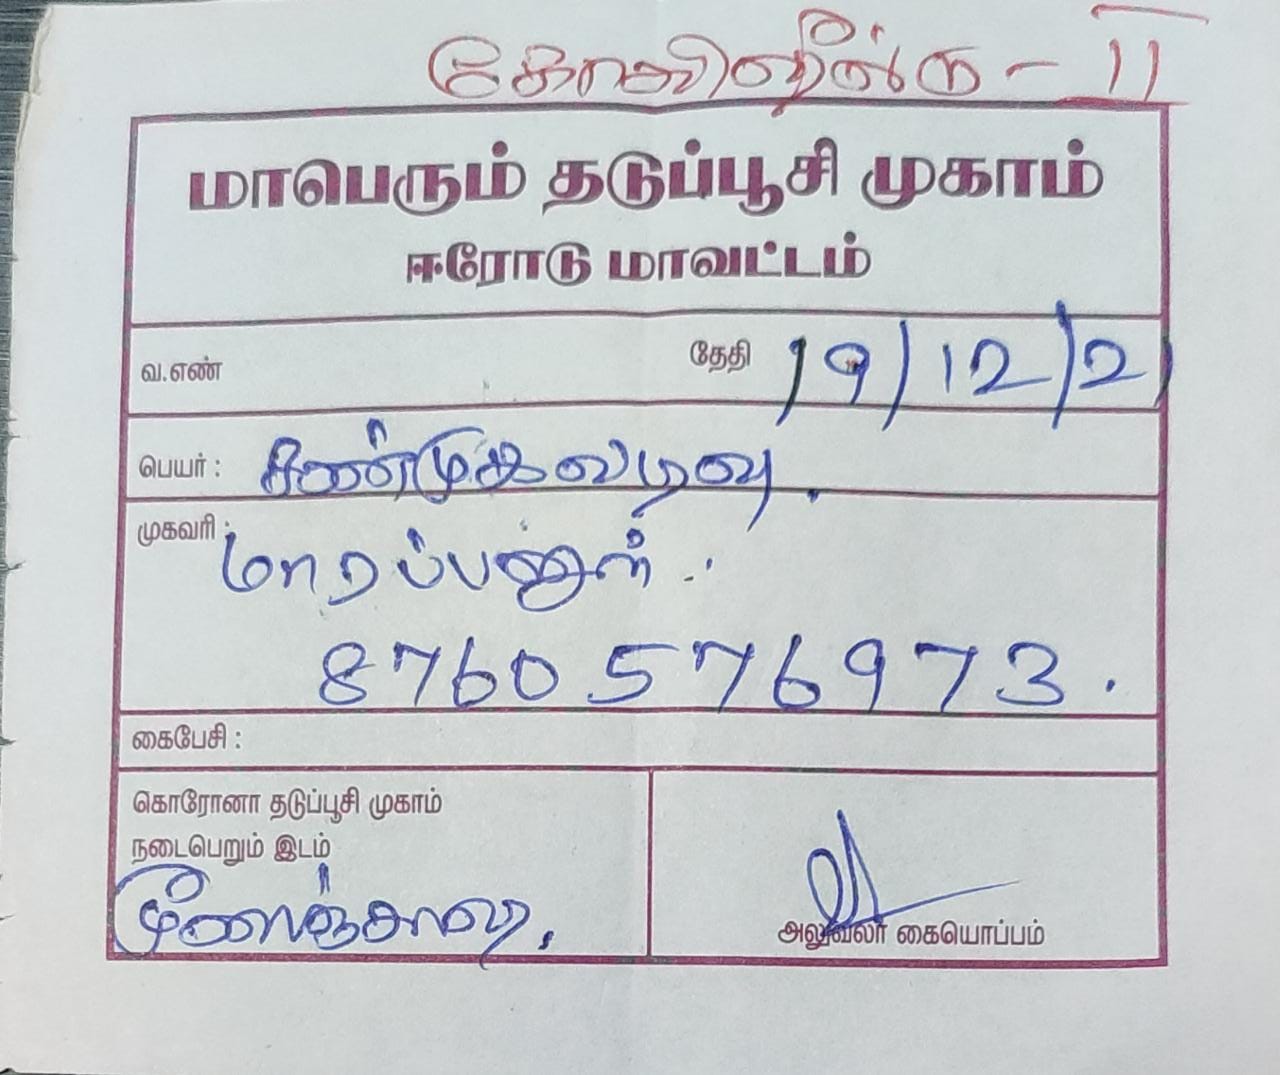 கோவிஷீல்டு - II
மாபெரும் தடுப்பூசி முகாம்
ஈரோடு மாவட்டம்
வ.எண் தேதி 19/12/21
பெயர் : சண்முகவடிவு.
முகவரி :
8760576973.
கைபேசி :
கொரோனா தடுப்பூசி முகாம்
நடைபெறும் இடம்
அலுவலர் கையொப்பம்